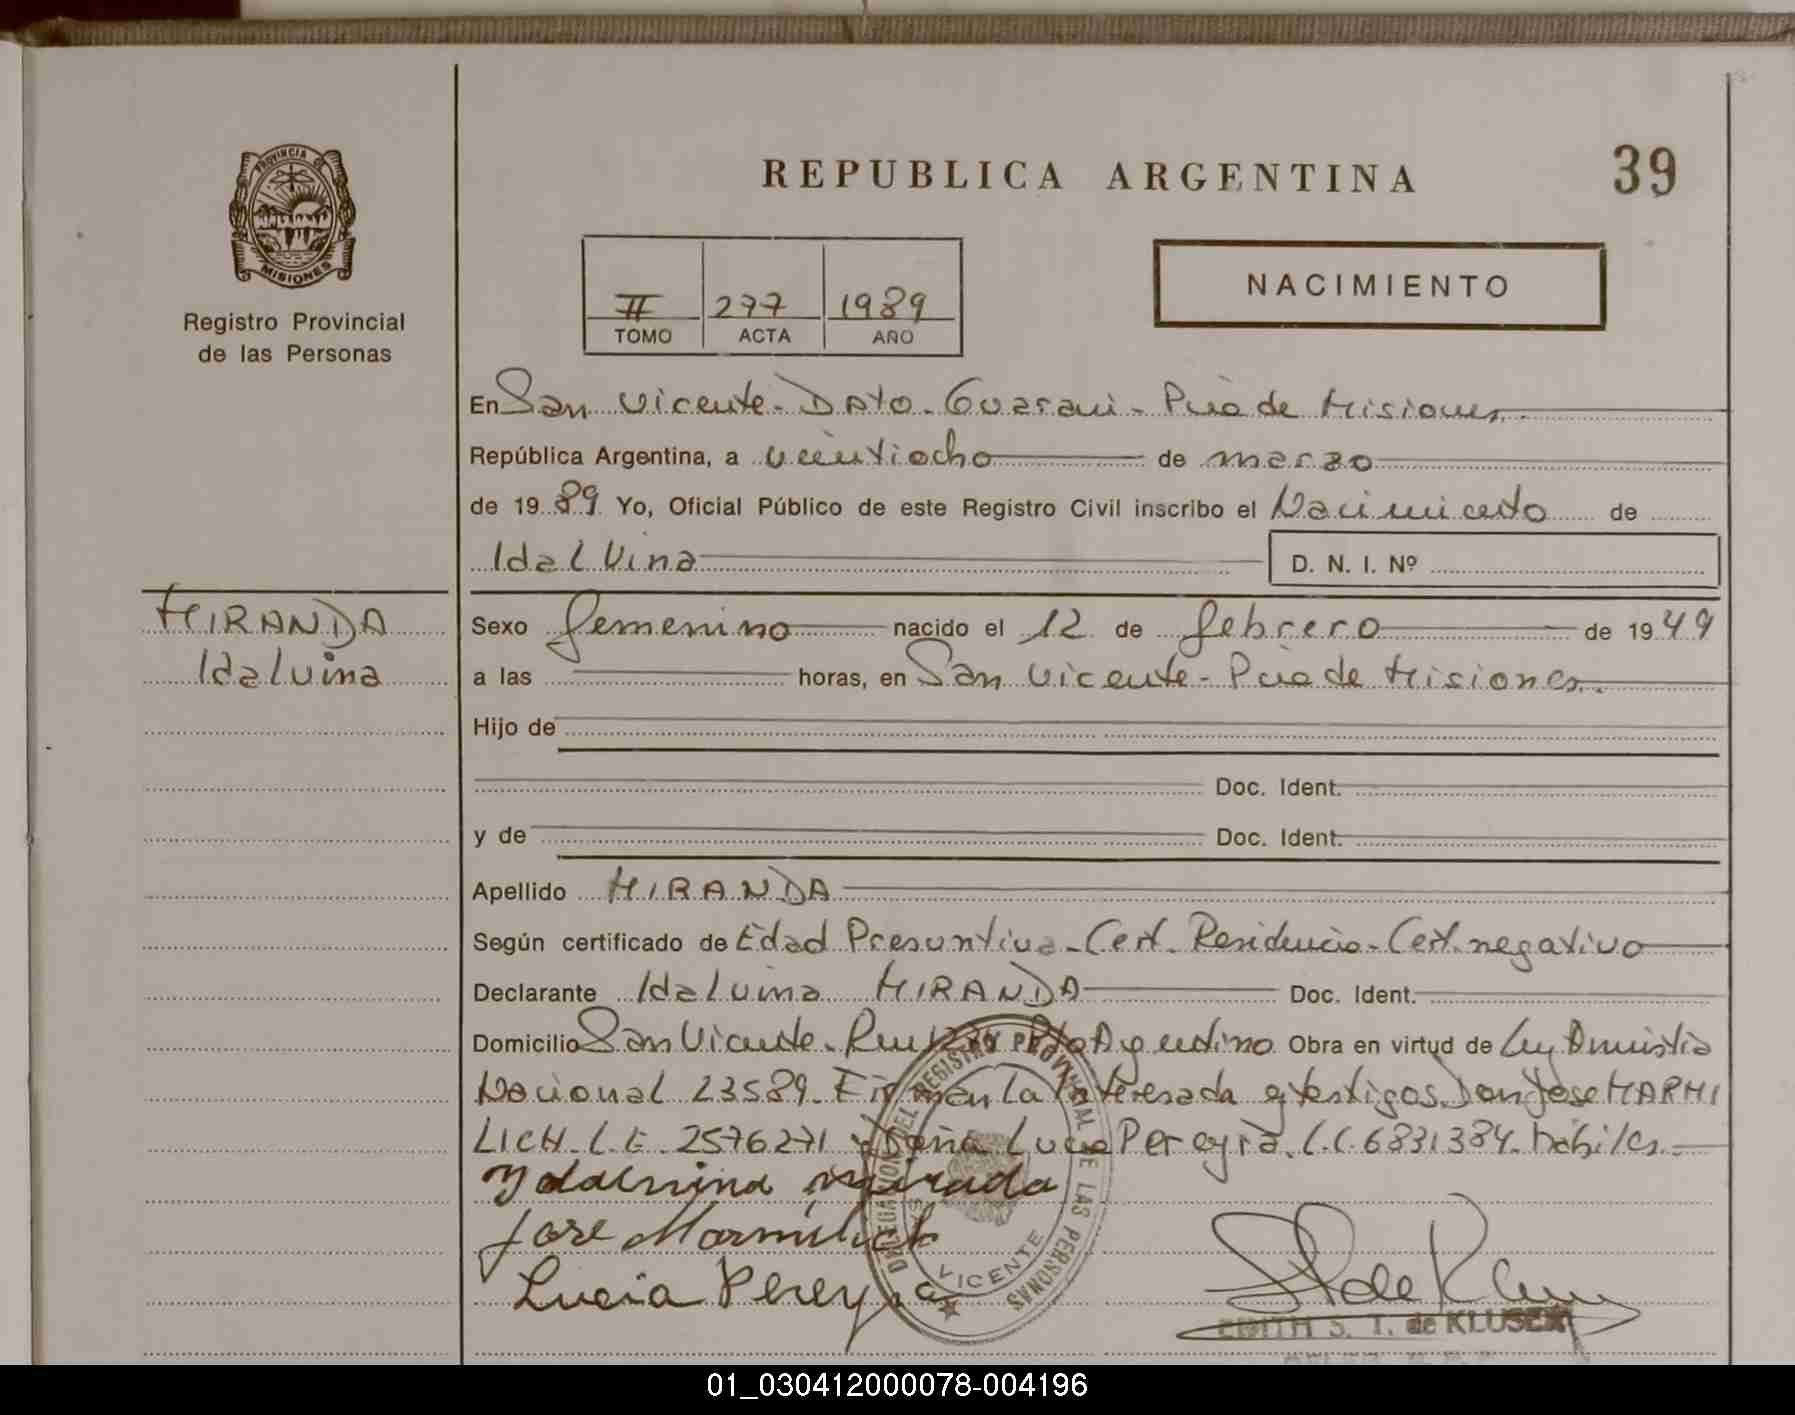 REPUBLICA ARGENTINA
39
PROVINCIA DE
MISIONES
Registro Provincial
de las Personas
II 277 1989
TOMO ACTA AÑO
NACIMIENTO
En San Vicente - Dpto. Guarani - Pcia de Misiones
República Argentina, a veintiocho de marzo
de 1989 Yo, Oficial Público de este Registro Civil inscribo el Nacimiento de
Idalvina D. N. I. Nº
MIRANDA
Idalvina
Sexo femenino nacido el 12 de febrero de 1949
a las horas, en San Vicente - Pcia de Misiones.
Hijo de
Doc. Ident.
y de Doc. Ident.
Apellido MIRANDA
Según certificado de Edad Presuntiva - Cert. Residencia - Cert. negativo
Declarante Idalvina MIRANDA Doc. Ident.
Domicilio San Vicente - Argentino Obra en virtud de Ley Amnistia
Nacional 23589. Firman La Interesada y testigos Don Jose MARMI
LICH. L.E. 2576271 y Doña Lucia Pereyra. L.C. 6831384. Hábiles.
Ydalvina mirada
Jose Marmilich
Lucia Pereyra
DELEGACION DEL REGISTRO PROVINCIAL DE LAS PERSONAS
VICENTE
EDITH S. T. de KLUSEK
01_030412000078-004196